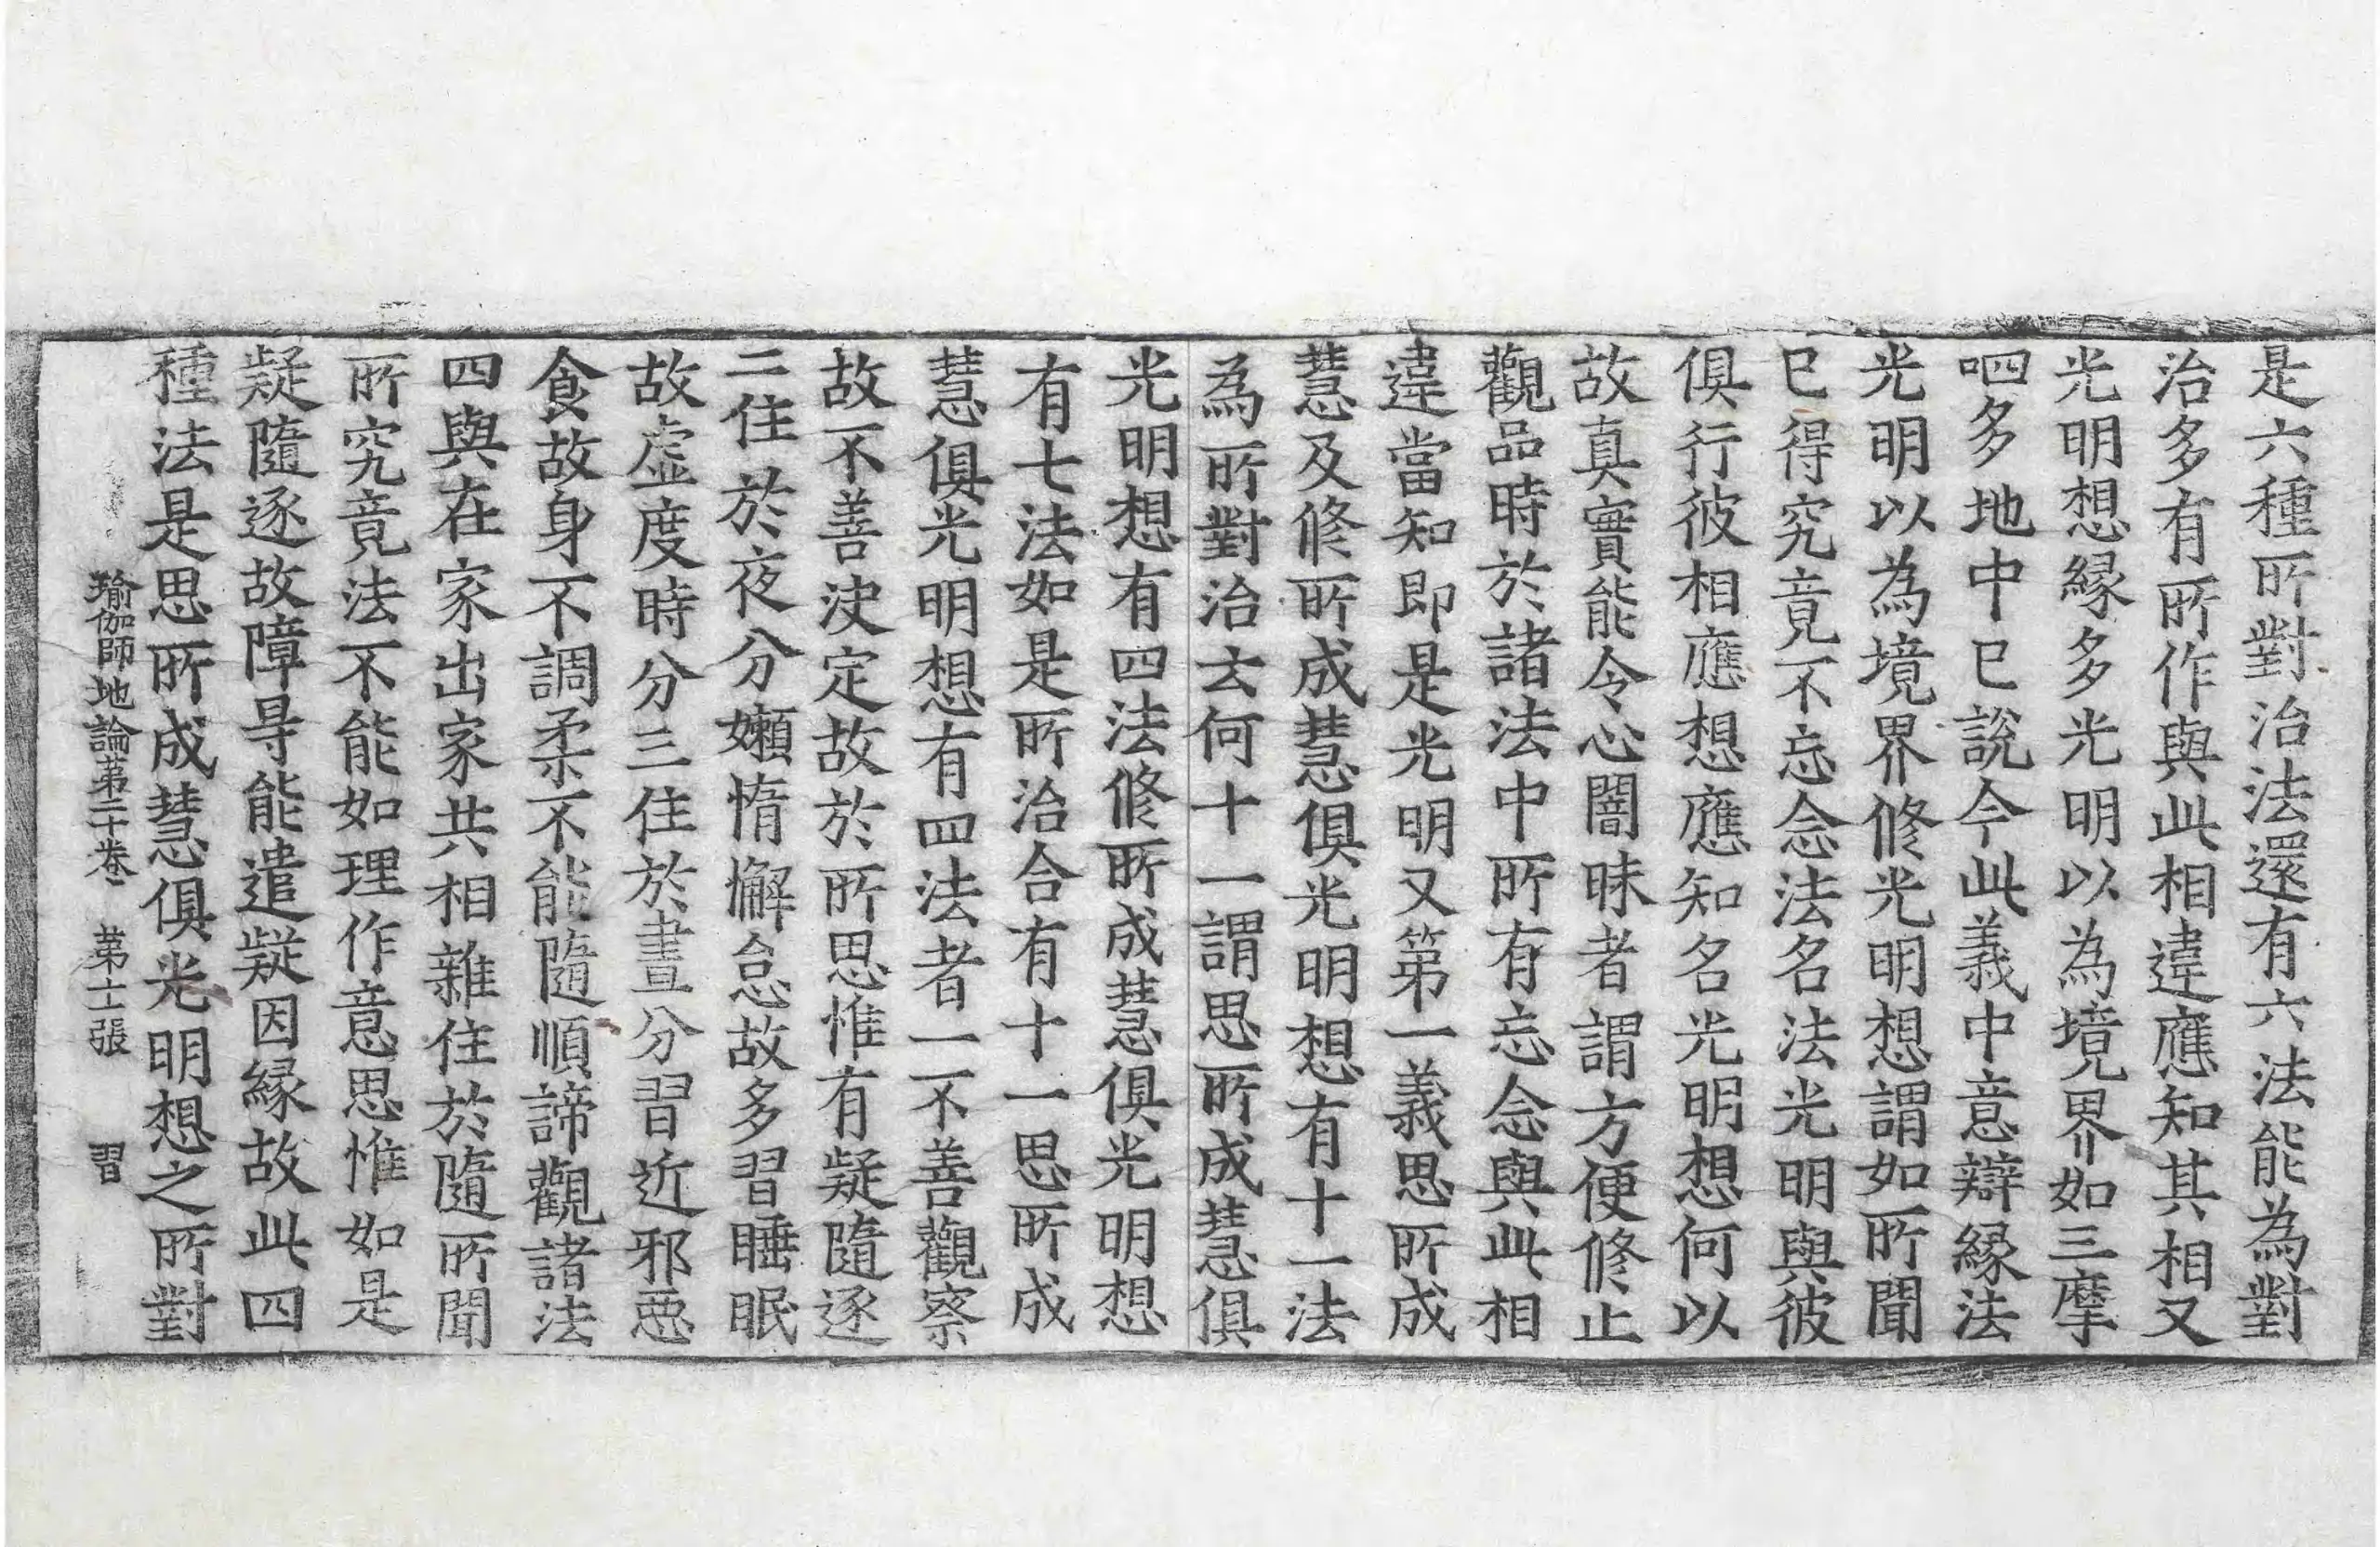 是六種所對治法還有六法能為對
治多有所作與此相違應知其相又
光明想緣多光明以為境界如三摩
呬多地中已說今此義中意辯緣法
光明以為境界修光明想謂如所聞
已得究竟不忘念法名法光明與彼
俱行彼相應想應知名光明想何以
故真實能令心闇昧者謂方便修止
觀品時於諸法中所有忘念與此相
違當知即是光明又第一義思所成
慧及修所成慧俱光明想有十一法
為所對治云何十一謂思所成慧俱
光明想有四法修所成慧俱光明想
有七法如是所治合有十一思所成
慧俱光明想有四法者一不善觀察
故不善決定故於所思惟有疑隨逐
二住於夜分嬾惰懈怠故多習睡眠
故虛度時分三住於晝分習近邪惡
食故身不調柔不能隨順諦觀諸法
四與在家出家共相雜住於隨所聞
所究竟法不能如理作意思惟如是
疑隨逐故障㝵能遣疑因緣故此四
種法是思所成慧俱光明想之所對
瑜伽師地論第二十卷 第十二張 習